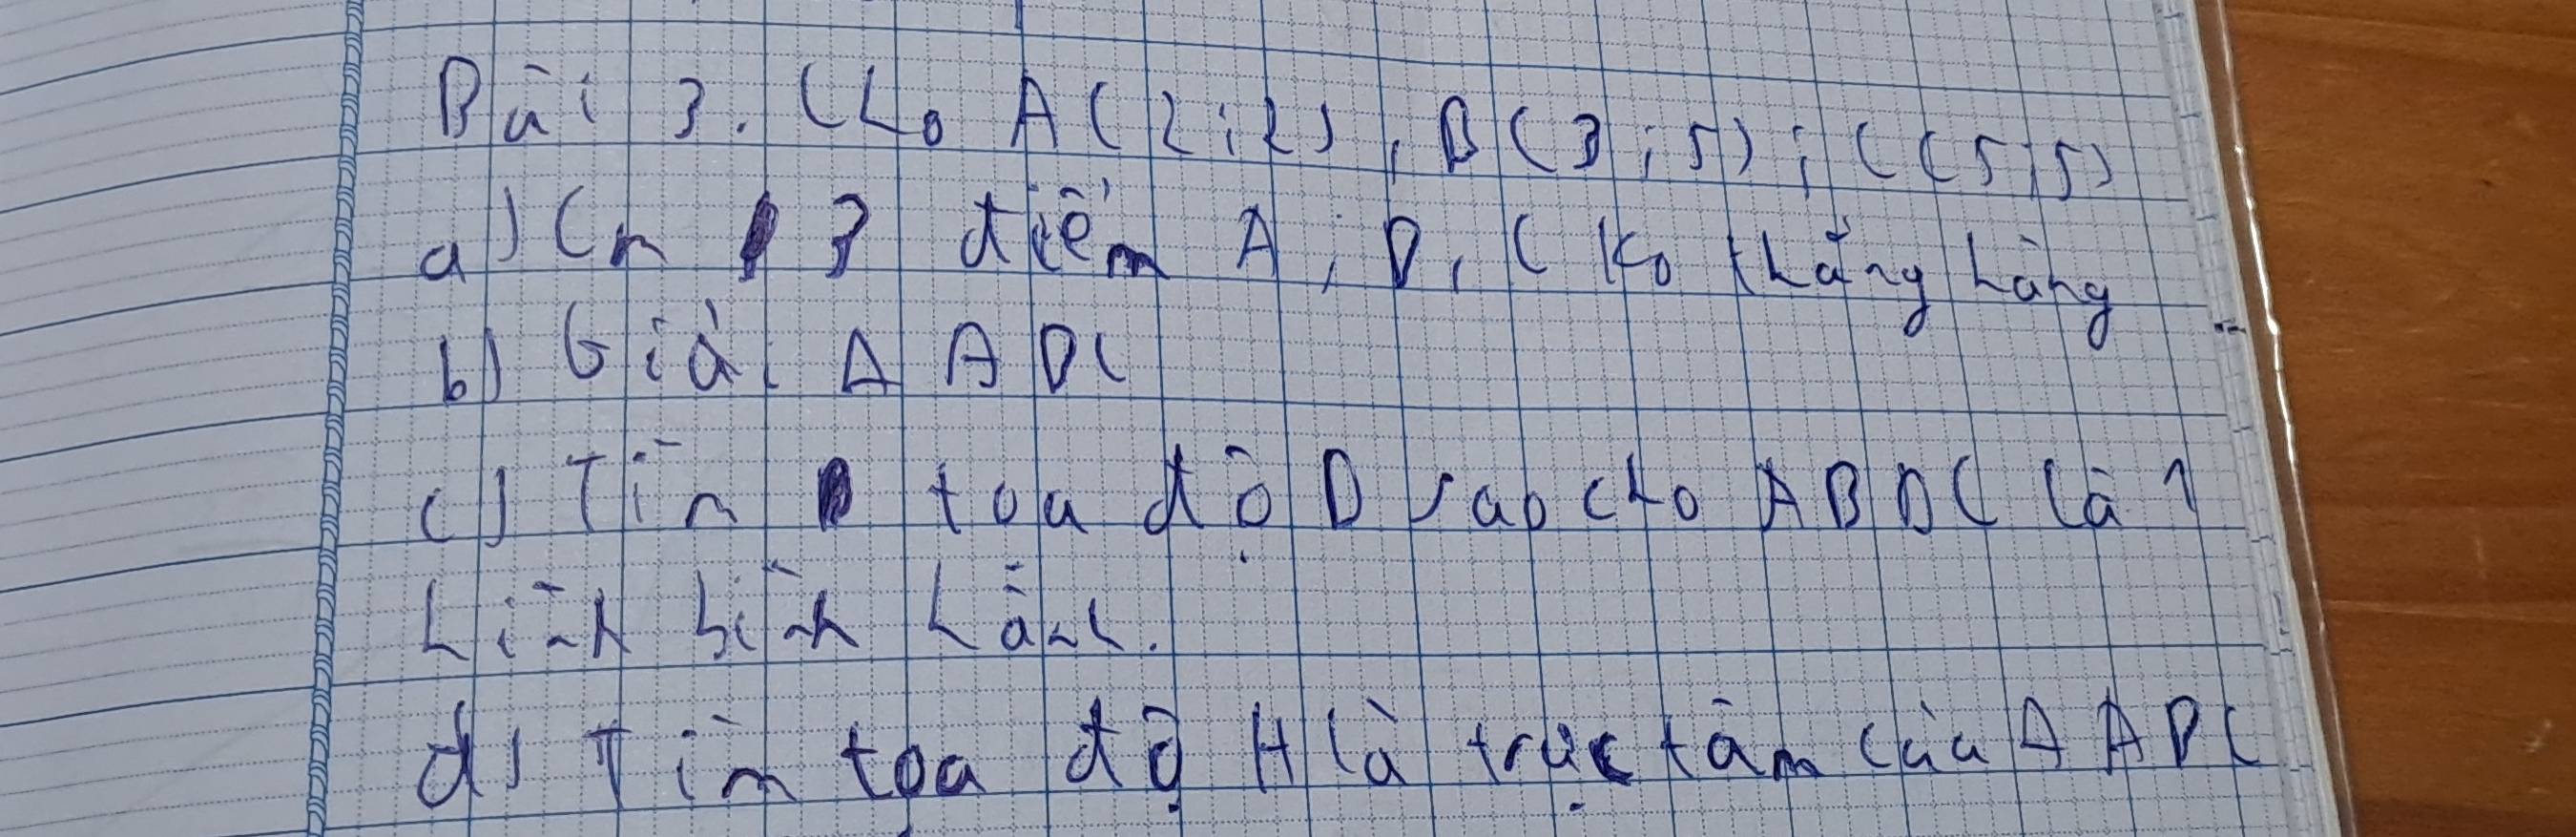 Bài 3. Cho A(2;2), B(3;5); C(5;5)
a) Cm 3 điểm A, B, C ko thẳng hàng
b) Giải Δ ABC
c) Tìm toạ độ D sao cho ABDC là 1
hình bình hành.
d) Tìm toạ độ H là trực tâm của Δ ABC